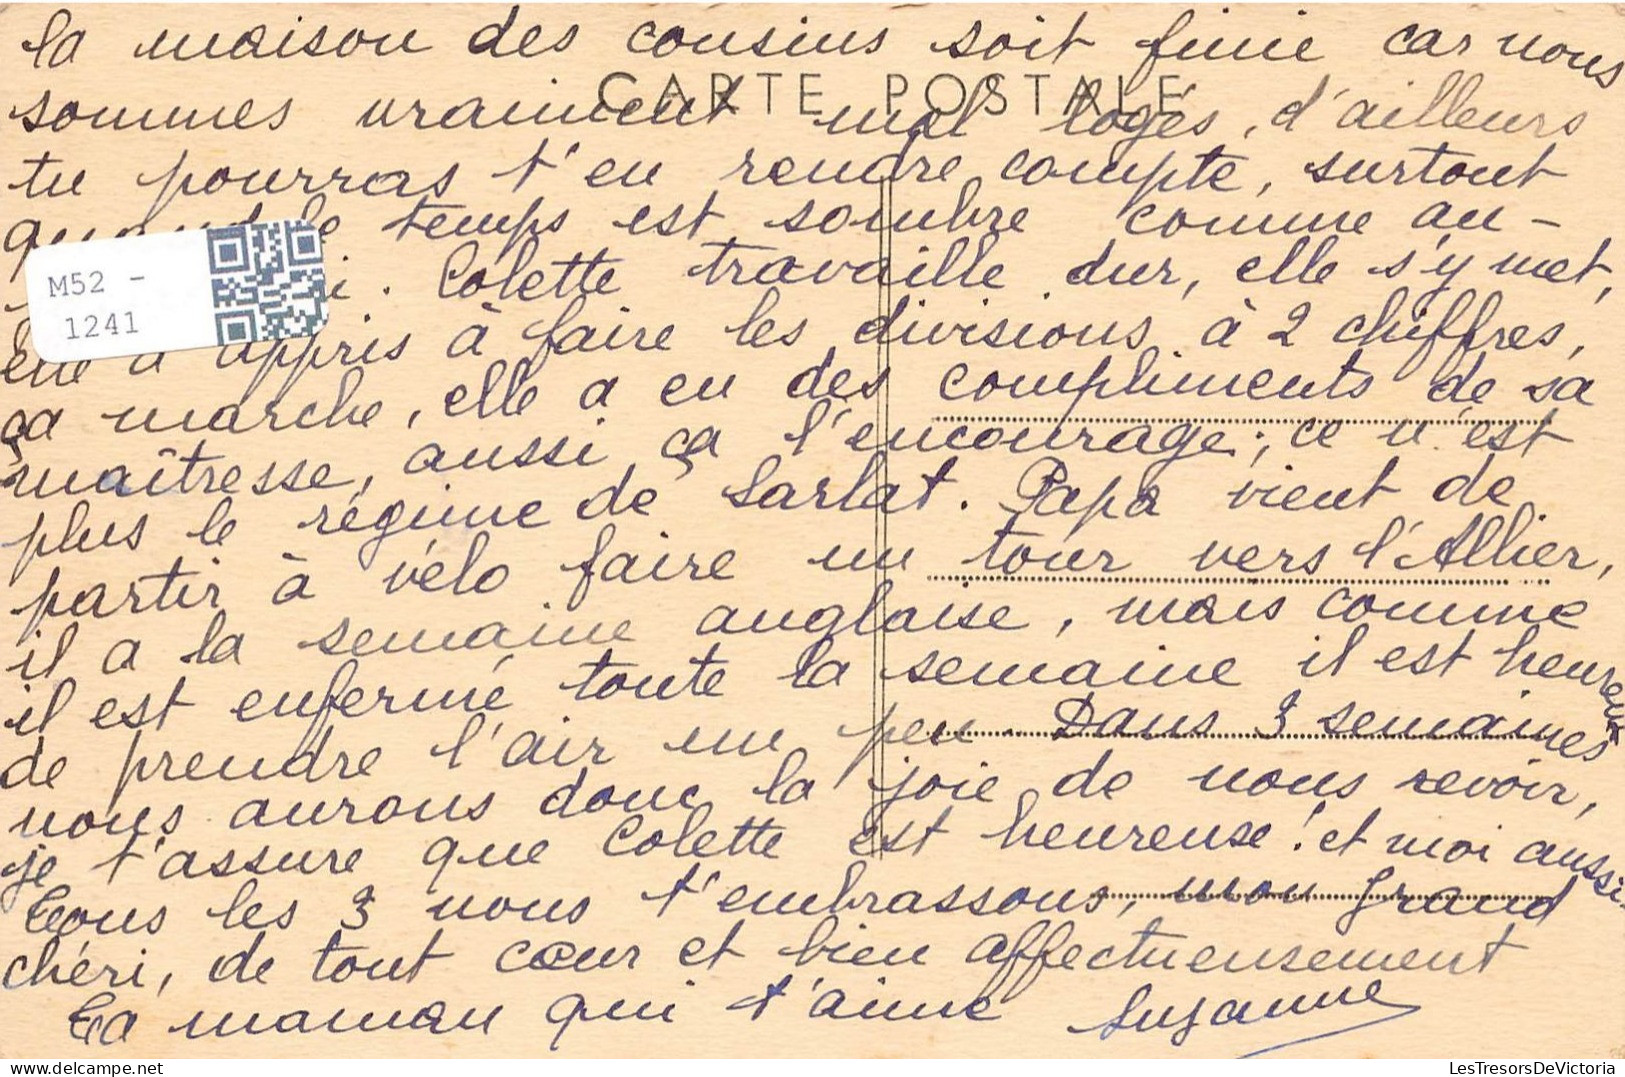 la maison des cousins soit finie car nous
CARTE POSTALE
sommes vraiment mal logés, d'ailleurs
tu pourras t'en rendre compte, surtout
le temps est sombre comme au-
M52 -
1241
i. Colette travaille dur, elle s'y met,
elle a appris à faire les divisions à 2 chiffres,
ça marche, elle a eu des compliments de sa
maîtresse, aussi ça l'encourage; ce n'est
plus le régime de Sarlat. Papa vient de
partir à vélo faire un tour vers l'Allier,
il a la semaine anglaise, mais comme
il est enfermé toute la semaine il est heureux
de prendre l'air un peu. Dans 3 semaines
nous aurons donc la joie de nous revoir,
je t'assure que Colette est heureuse! et moi aussi.
Tous les 3 nous t'embrassons, mon grand
chéri, de tout cœur et bien affectueusement
Ta maman qui t'aime Suzanne
www.delcampe.net
LesTresorsDeVictoria